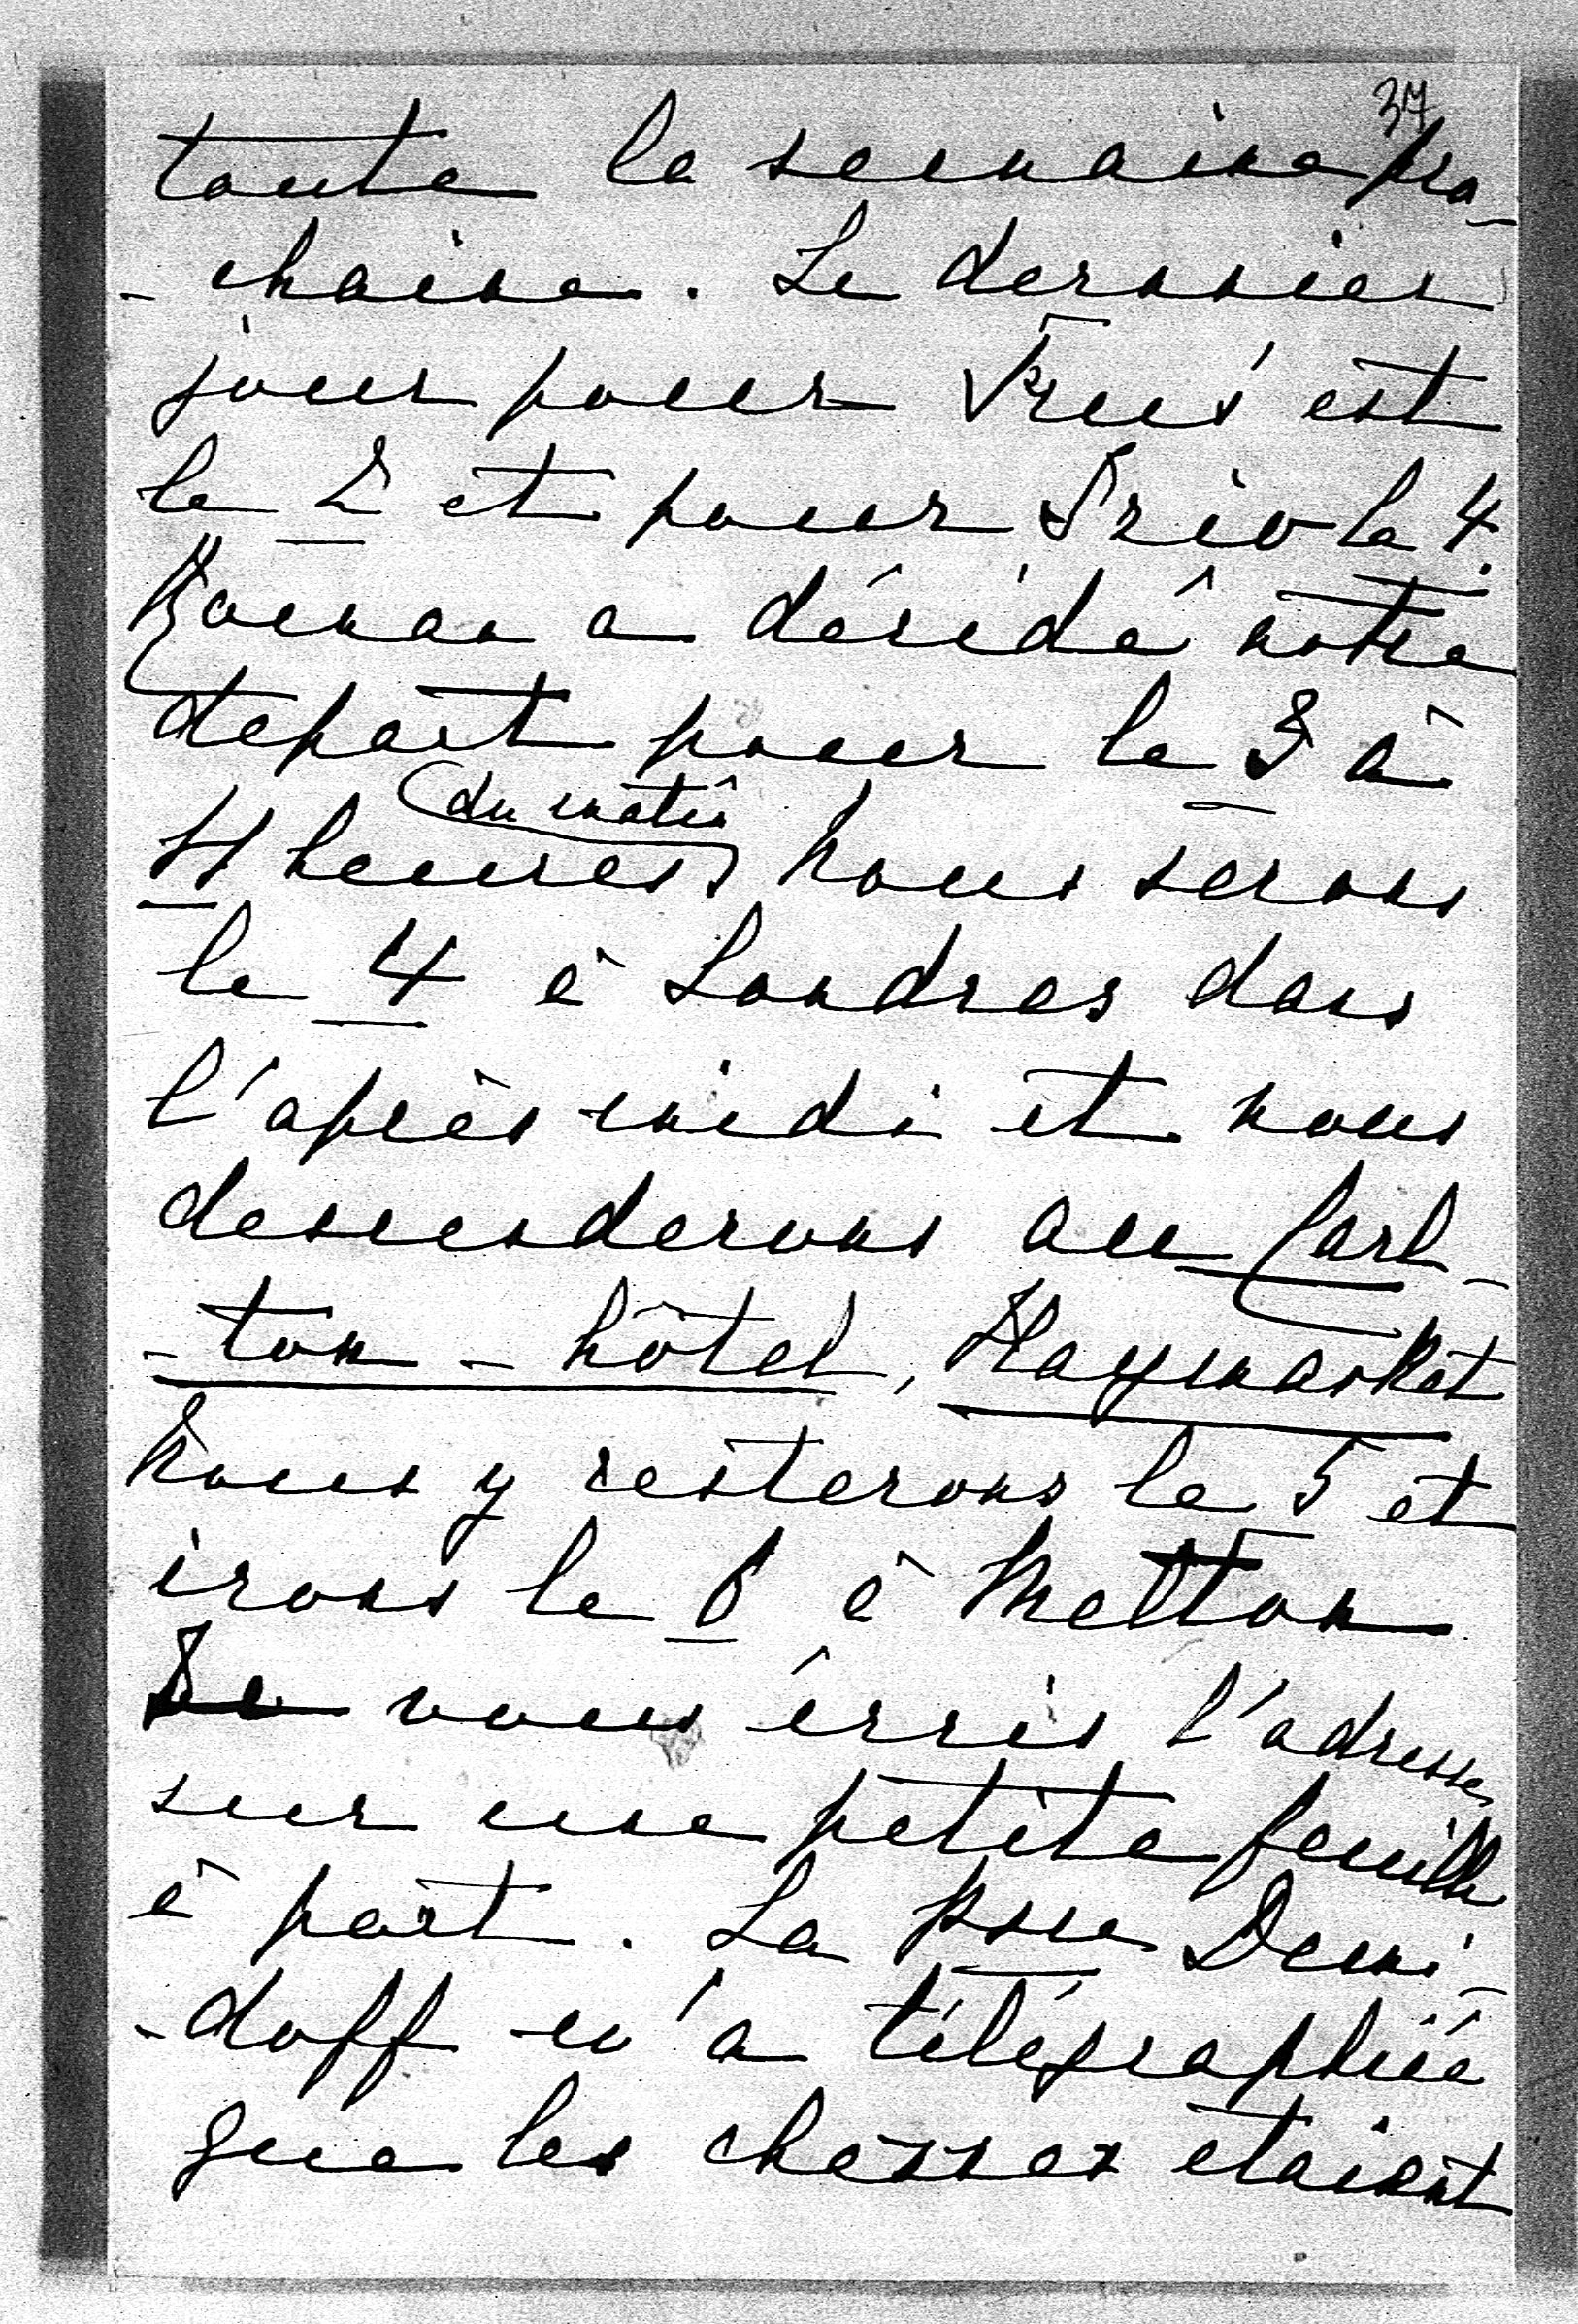 37
toute la semaine pro-
-chaine. Le dernier
jour pour est
le 2 et pour Trio le 4.
Roman a décidé notre
départ pour le 3 à
4 heures (du matin) nous serons
le 4 à Londres dans
l'après-midi et nous
descenderons au Carl-
-ton-hôtel, Haymarket
Nous y resterons le 5 et
irons le 6 à Melton
Je vous écris l'adresse
sur une petite feuille
à part. La Psse Demi-
-doff m'a télégraphié
que les chasses étaient